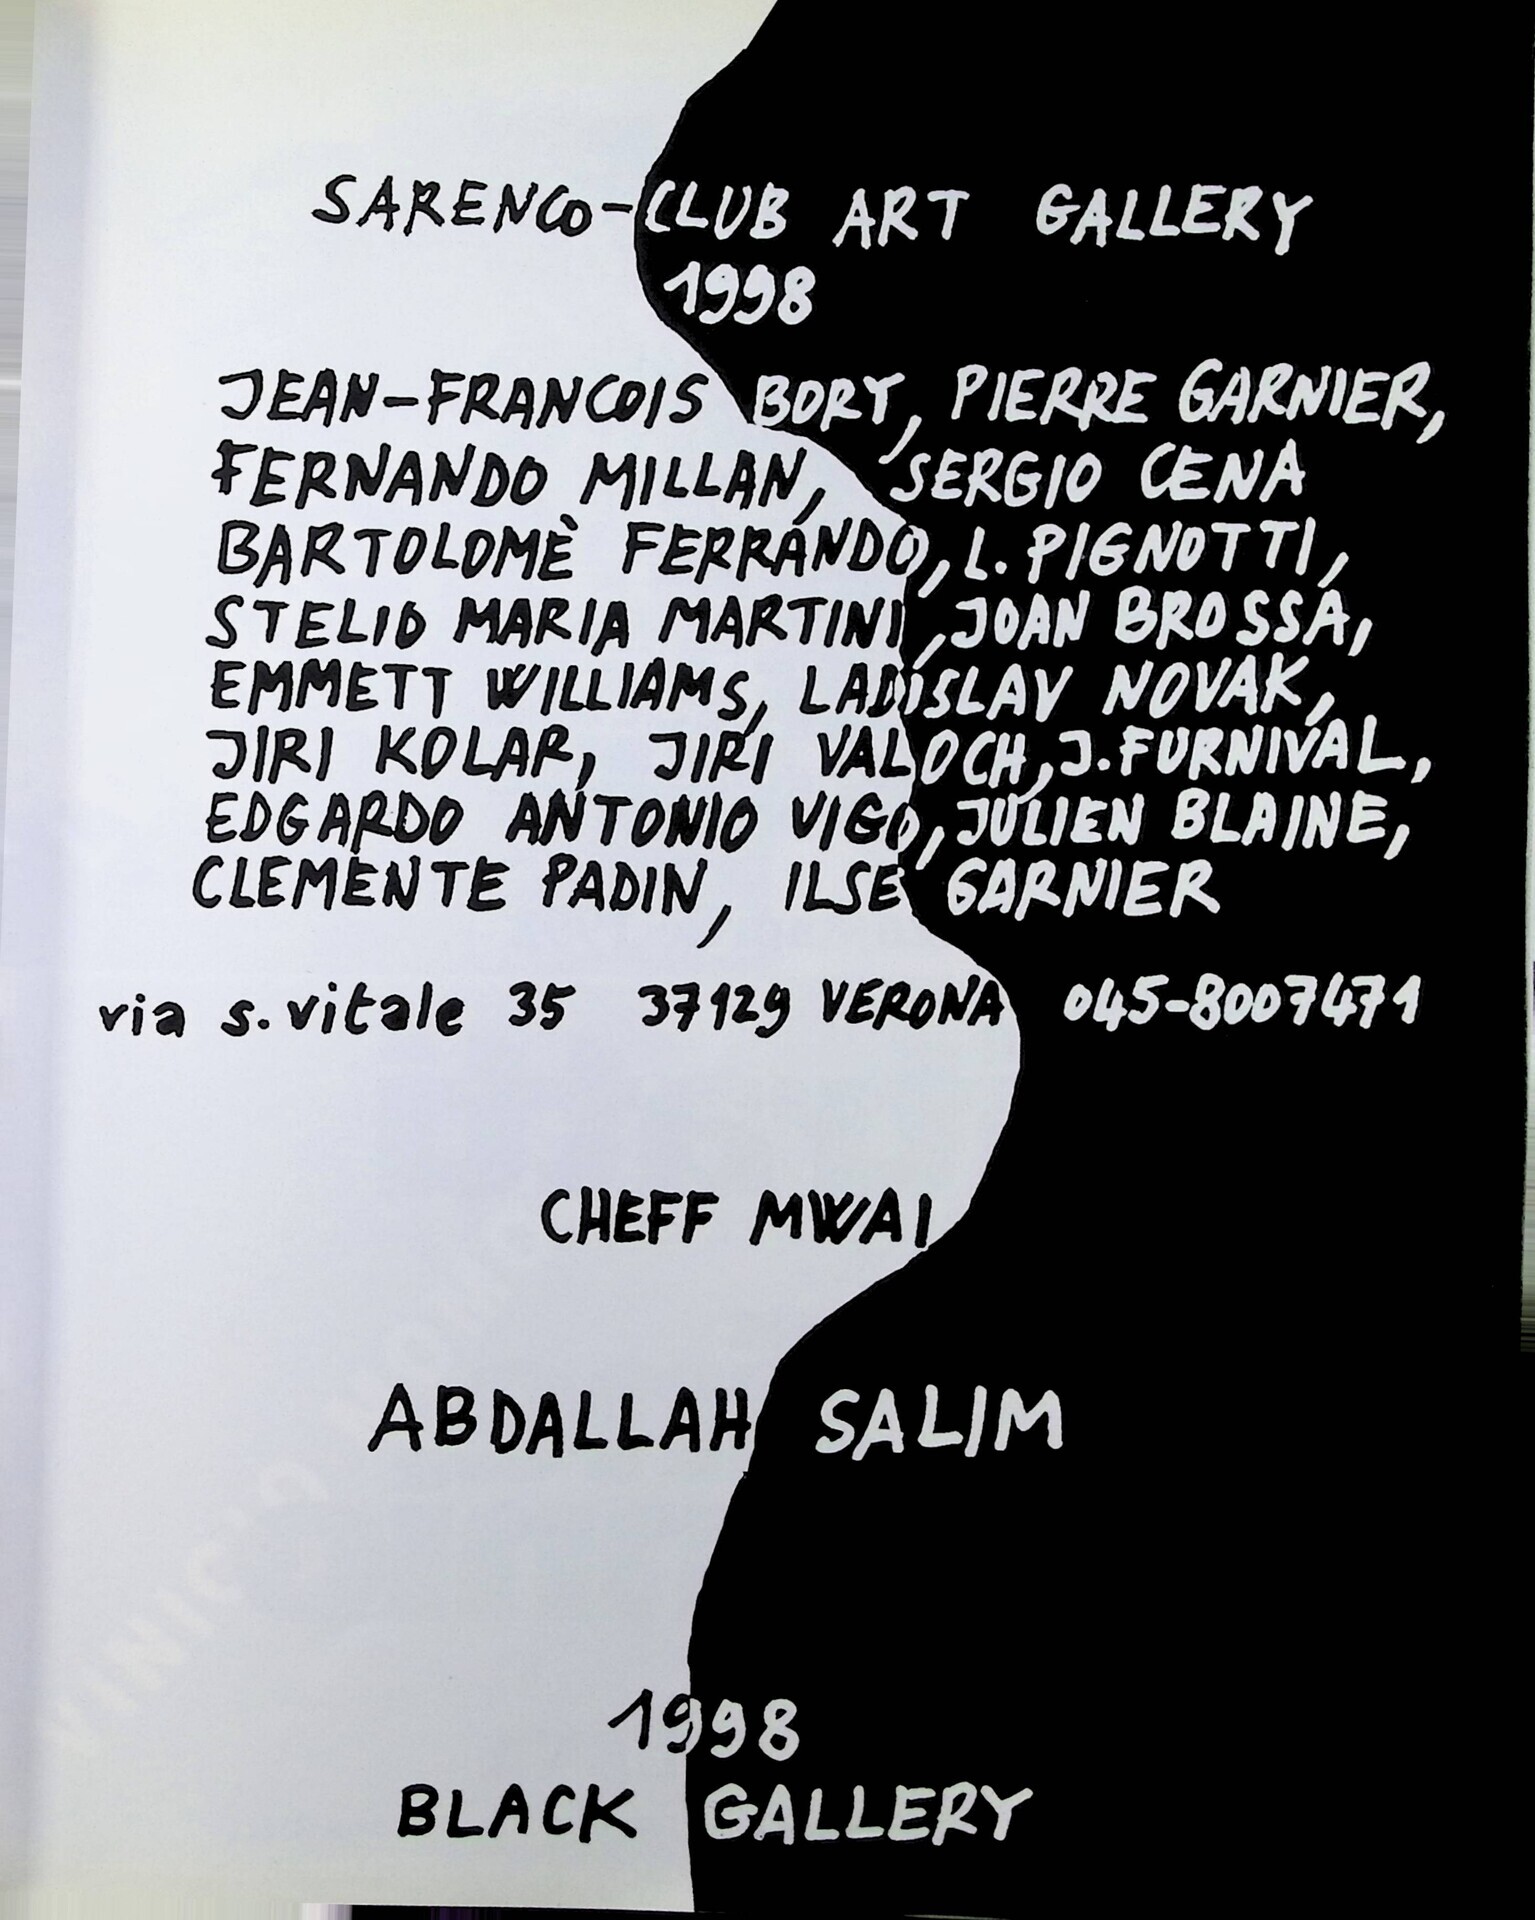 SARENCO-CLUB ART GALLERY
1998
JEAN-FRANCOIS BORY, PIERRE GARNIER,
FERNANDO MILLAN, SERGIO CENA
BARTOLOMÈ FERRÁNDO, L. PIGNOTTI,
STELIO MARIA MARTINI, JOAN BROSSA,
EMMETT WILLIAMS, LADISLAV NOVAK,
JIRI KOLAR, JIRI VALOCH, J. FURNIVAL,
EDGARDO ANTONIO VIGO, JULIEN BLAINE,
CLEMENTE PADIN, ILSE GARNIER
via s. vitale 35 37129 VERONA 045-8007471
CHEFF MWAI
ABDALLAH SALIM
1998
BLACK GALLERY